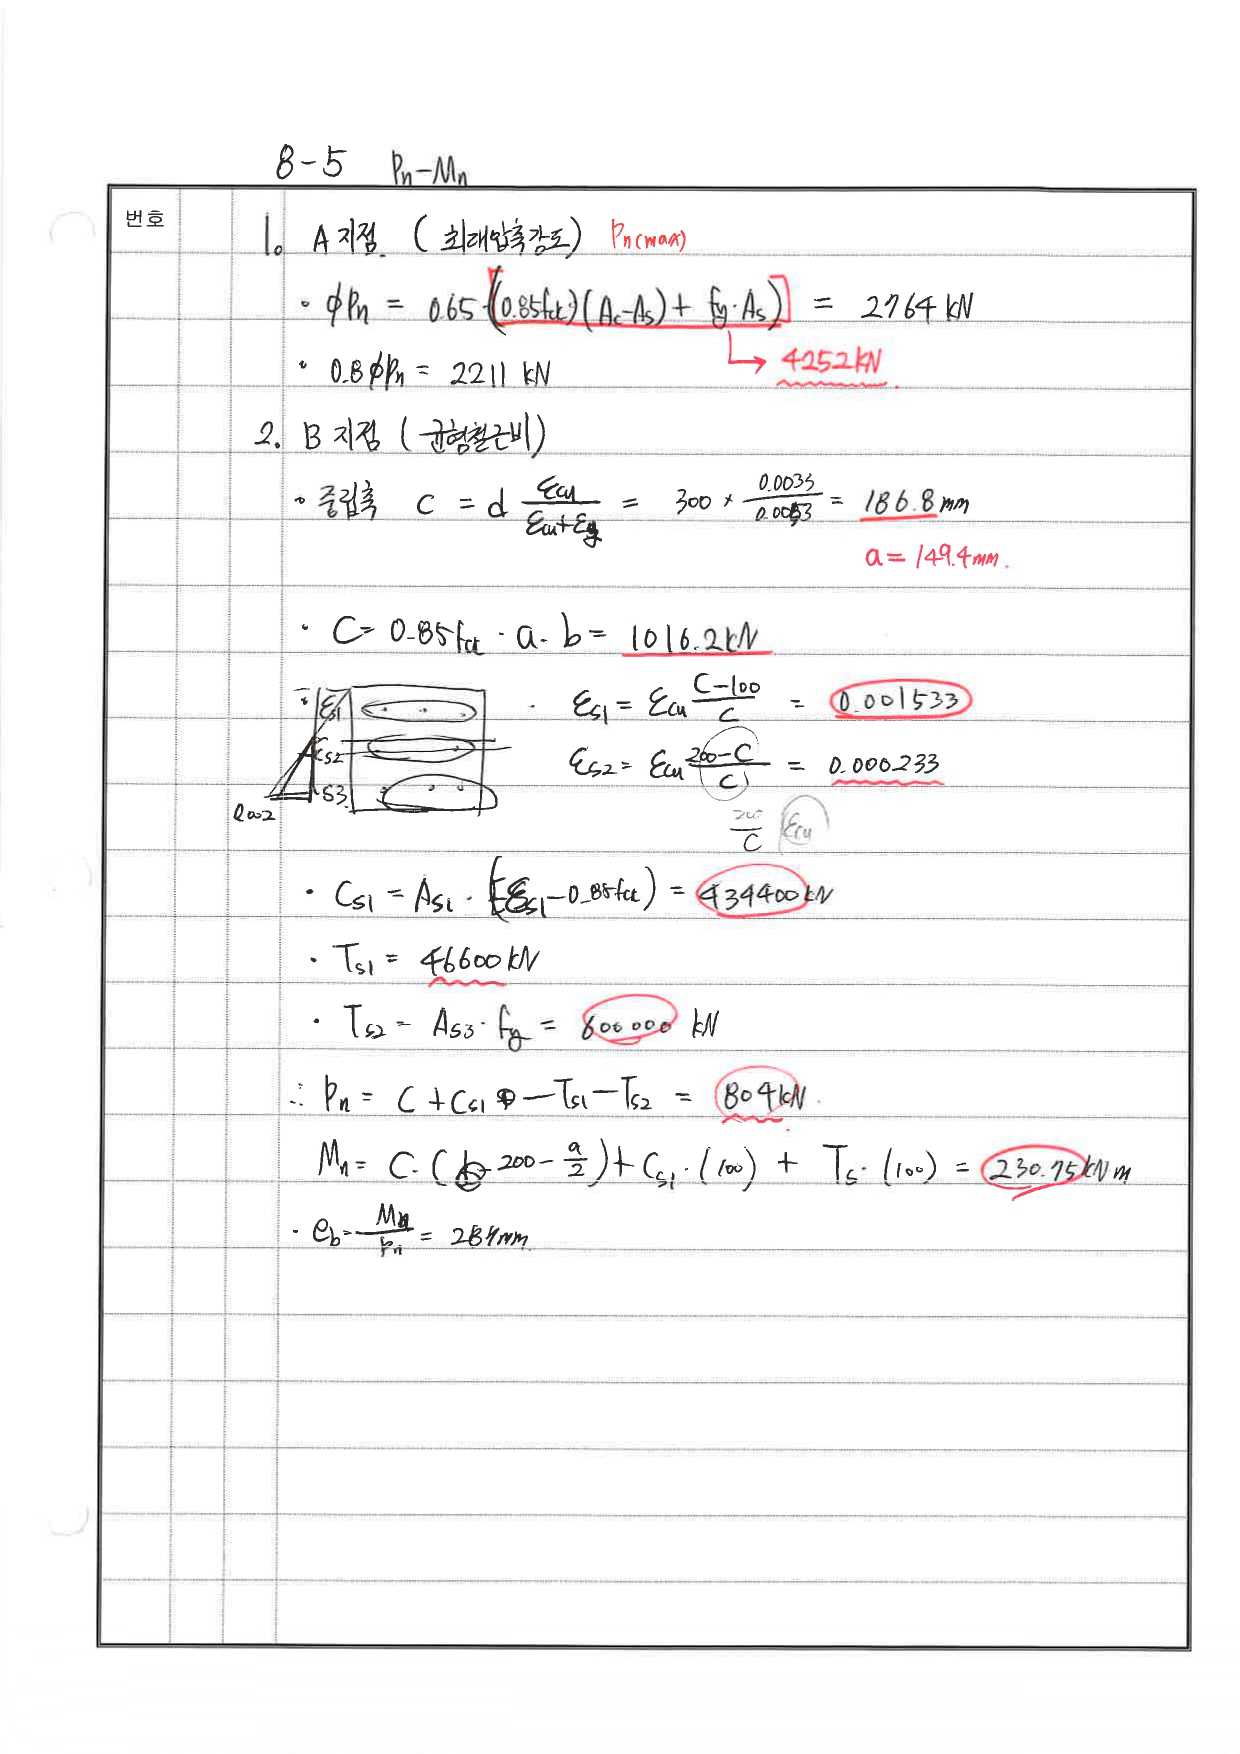 8-5 Pn-Mn
번호
1. A지점 (최대압축강도) Pn(max)
· ϕPn = 0.65·[(0.85fck)(Ac-As) + fy·As)] = 2764 kN
→ 4252kN
· 0.8ϕPn = 2211 kN
2. B지점 (균형철근비)
· 중립축 C = d εcu/(εcu+εy) = 300 × 0.0033/0.0053 = 186.8mm
a = 149.4mm.
· C = 0.85fck · a · b = 1016.2kN
· εs1 = εcu (C-100)/C = 0.001533
εs2 = εcu (200-C)/(C) = 0.000233
εs1
εs2
εs3
0.002
200/C εcu
· Cs1 = As1 · (Eεs1 - 0.85fck) = 434400kN
· Ts1 = 46600kN
· Ts2 = As3 · fy = 600000 kN
∴ Pn = C + Cs1 - Ts1 - Ts2 = 804kN.
Mn = C·( 200 - a/2 ) + Cs1·(100) + Ts·(100) = 230.75kNm
· eb = Mn/Pn = 287mm